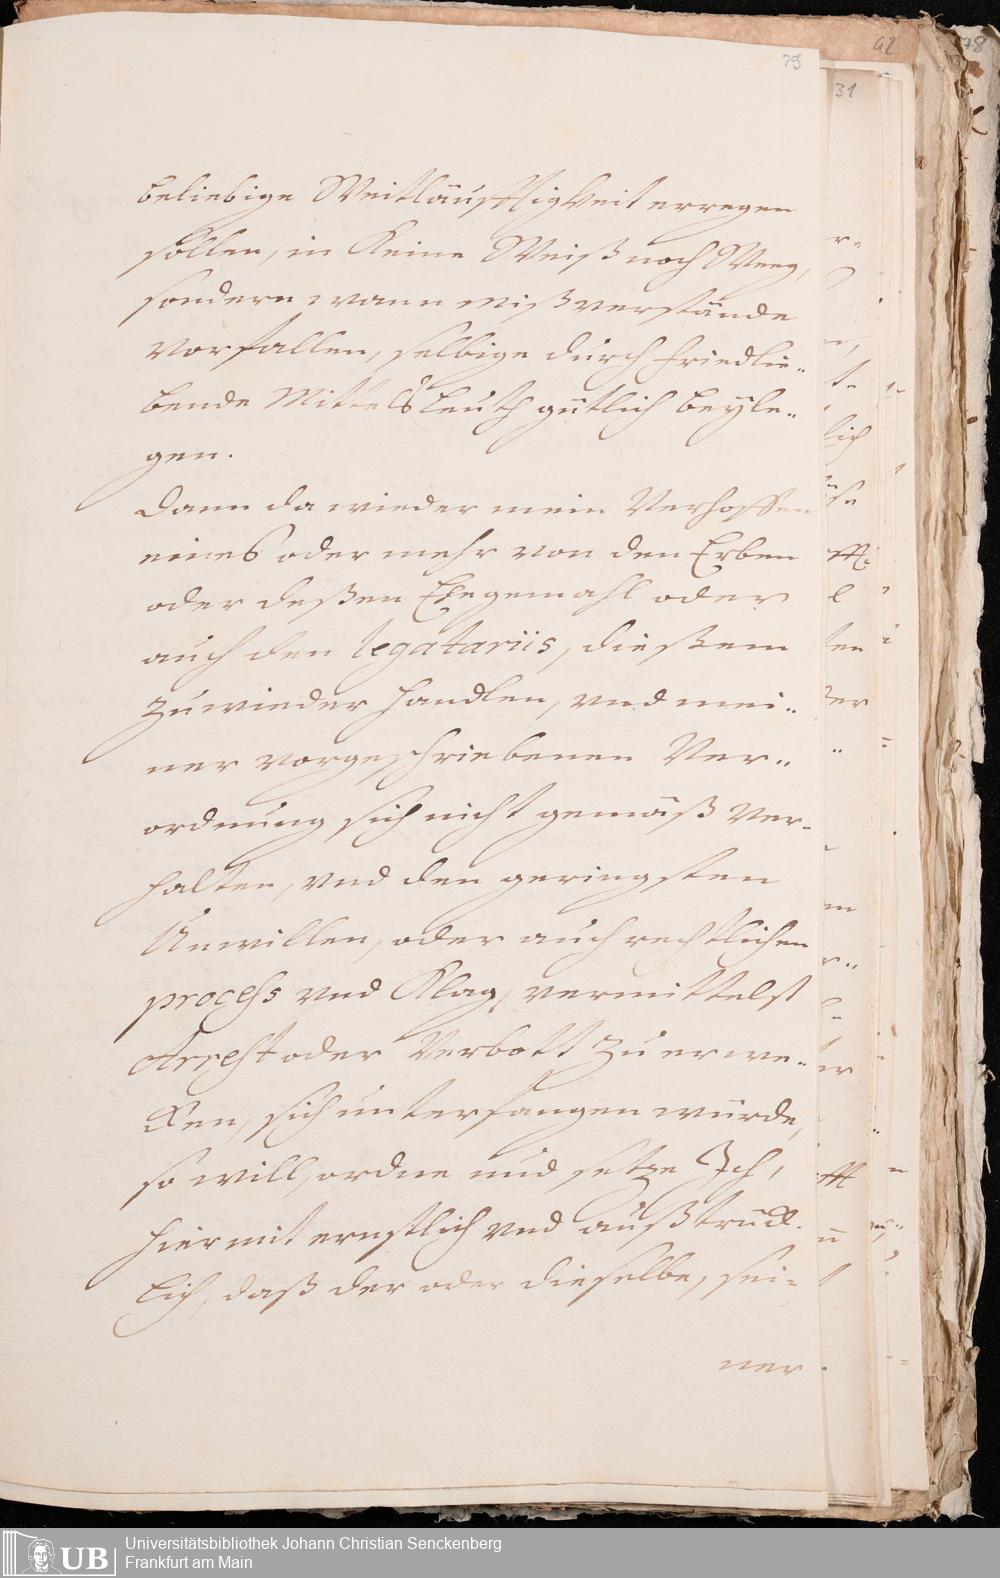 29
beliebige Weitläufftigkeit erregen
sollen, in Keine Weiß noch Weeg,
sondern wann mißverstände
vorfallen, selbige durch friedlie..
bende Mittelsleuth gütlich beyle..
gen.
Dann da wieder mein Verhoffen
eines oder mehr von den Erben
oder deßen Ehegemahl oder
auch den legatariis, dießem
zuwieder handlen, vnd mei..
ner vorgeschriebenen Ver..
ordnung sich nicht gemäß ver-
halten, vnd den geringsten
Unwillen, oder auch rechtlichen
process vnd Klag, vermittelst
Arrest oder Verbott zu erwe..
cken, sich unterfangen würde,
so will, ordne und setze Ich,
hiermit ernstlich vnd außtrück-
lich, daß der oder dieselbe, sei-
ner
31
42
78
UB
Universitätsbibliothek Johann Christian Senckenberg
Frankfurt am Main